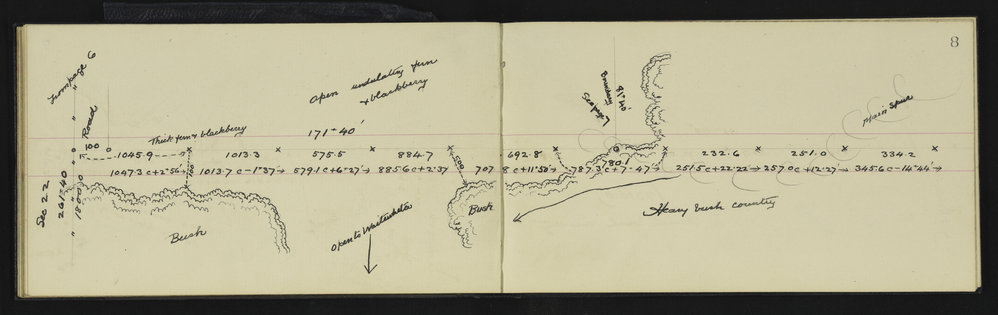 8
From page 6
Road
100
Thick fern & blackberry
Open undulating fern
& blackberry
171° 40'
Boundary
81° 40'
See page 7
Main Spur
1045.9
1013.3
575.5
884.7
500
692.8
780.1
232.6
251.0
334.2
1047.3 c+2°56'
100
1013.7 c-1°37'
579.1 c+6°27'
885.6 c+2°37
707.8 c+11°58'
787.3 c+7°47'
251.5 c+22°22'
257.0 c+12°27'
345.6 c-14°44'
Sec 22
261° 40
1800.0
Bush
Open to
Bush
Heavy bush country